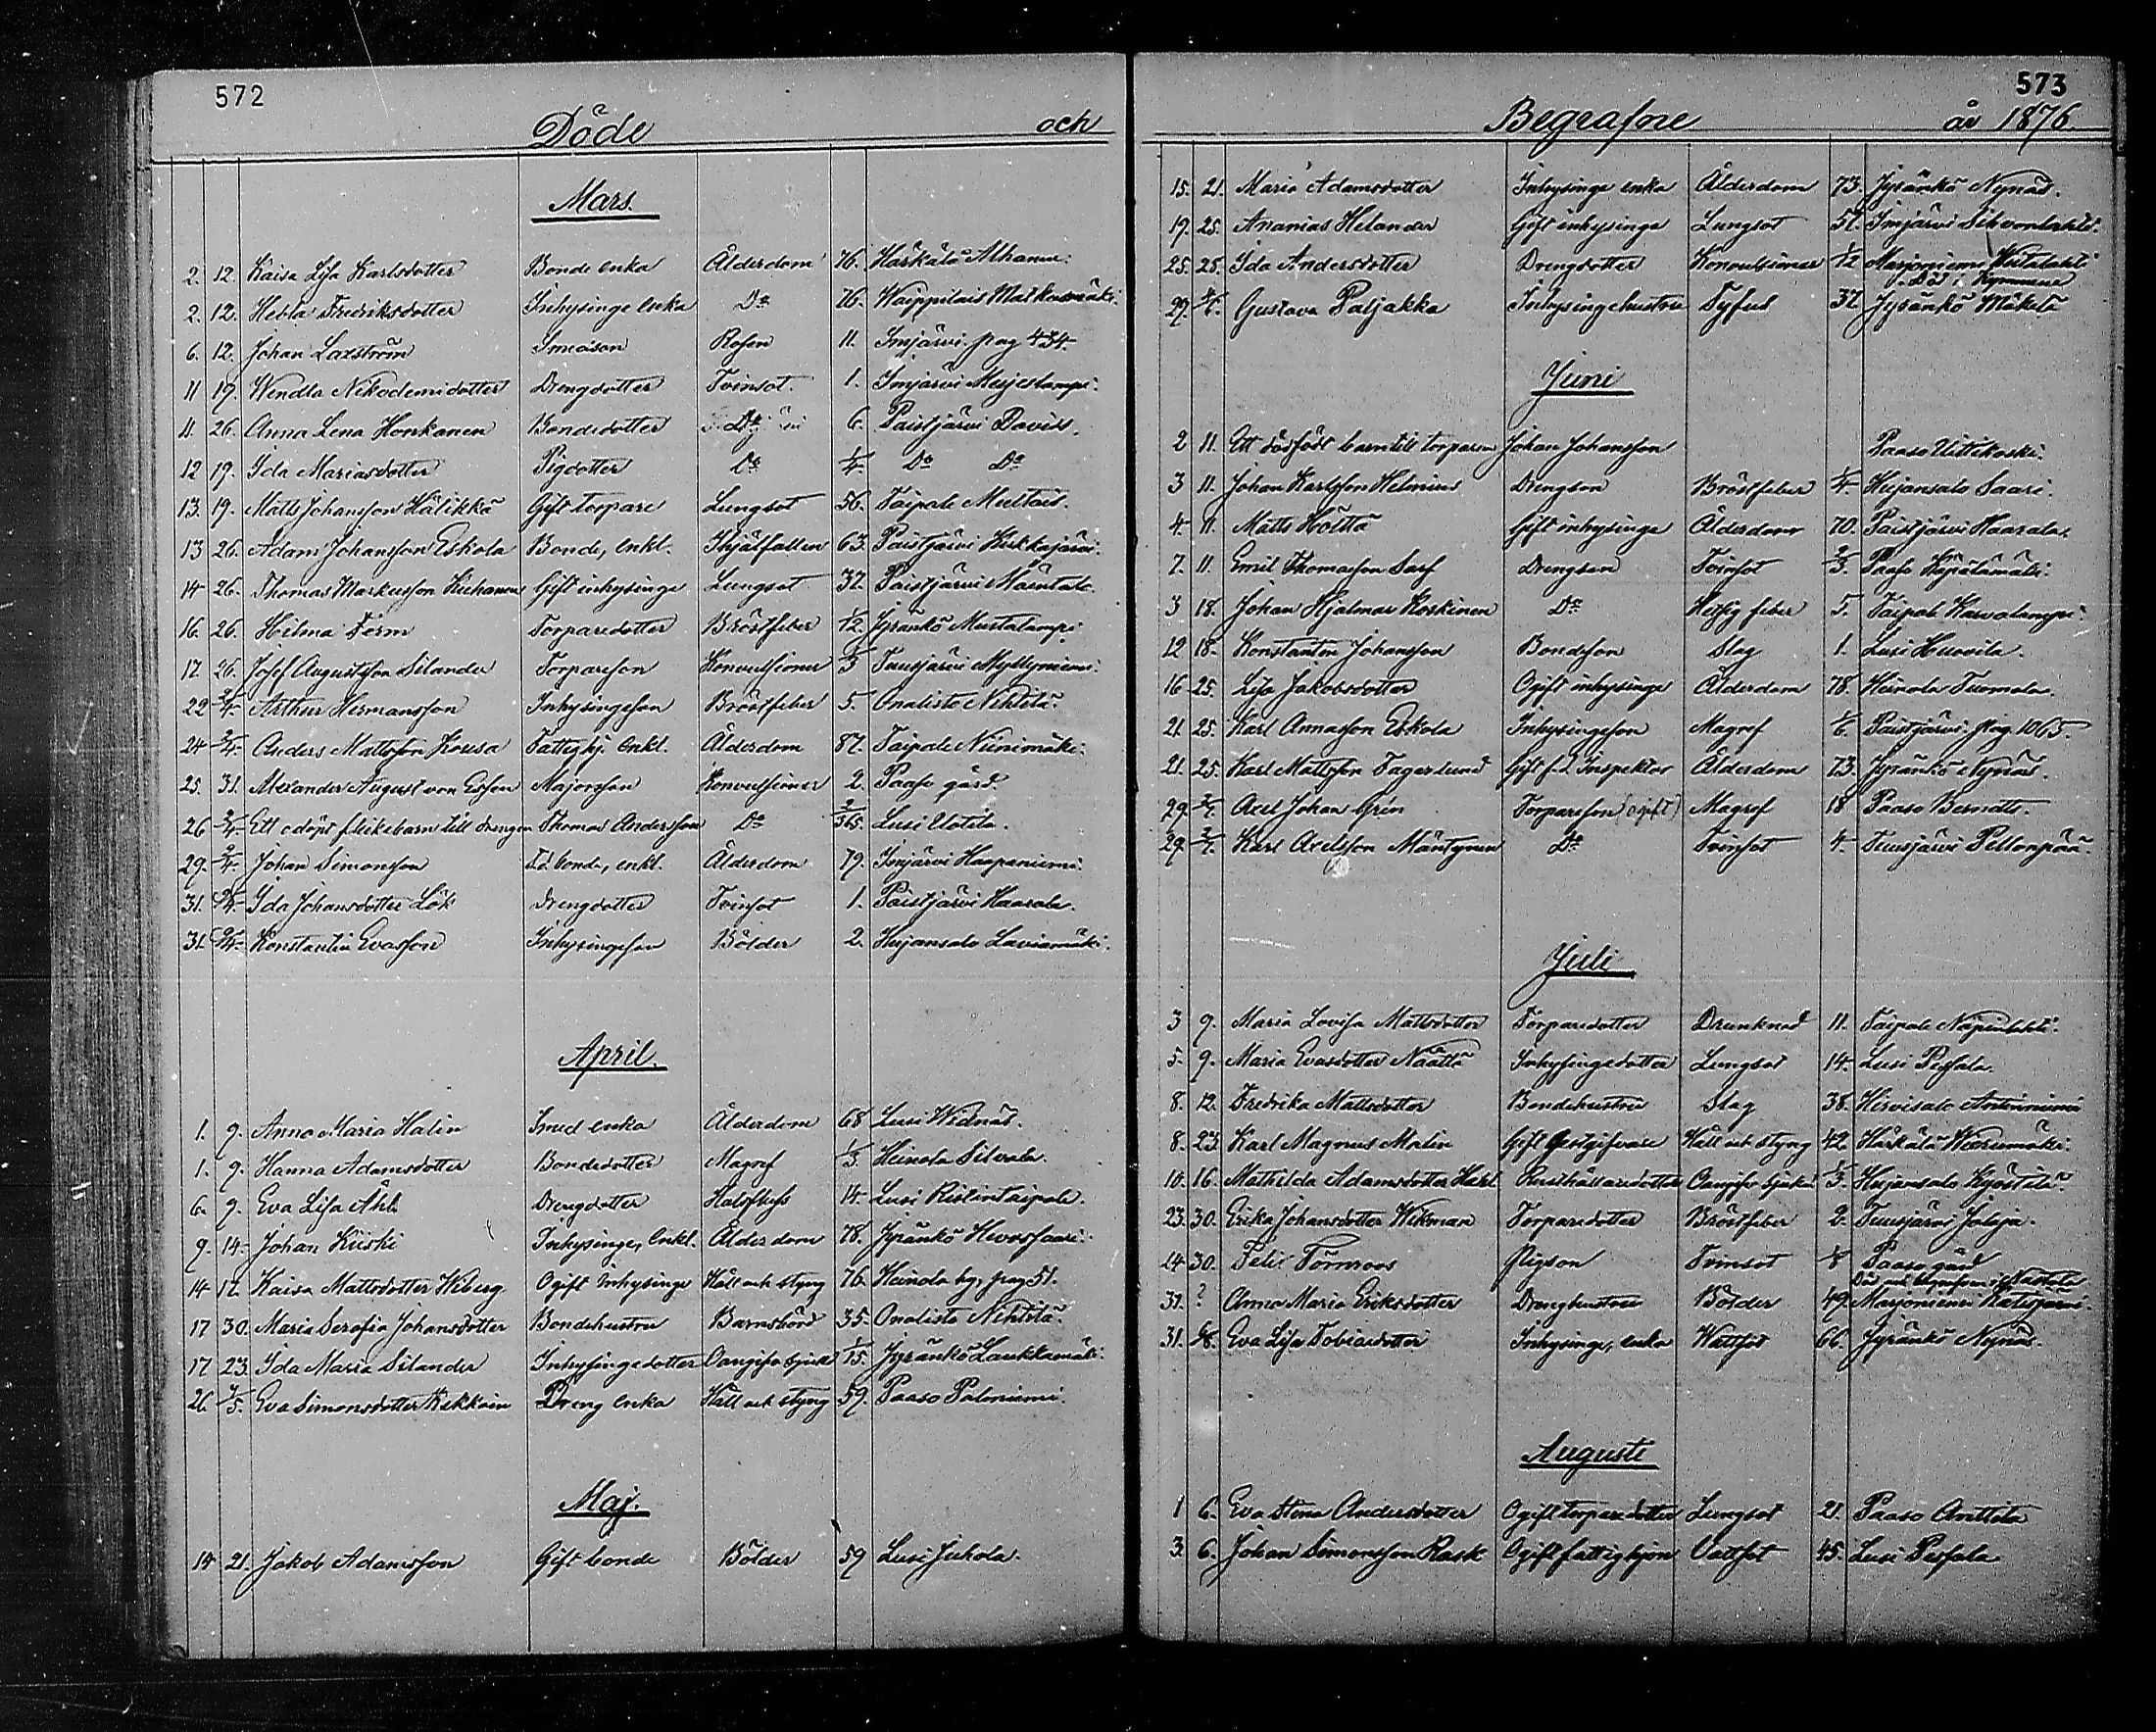 572
Döde och
Mars.
2. 12. Kaisa Lisa Karlsdotter Bonde enka Ålderdom 76. Härkälä Alhanen.
2. 12. Hebla Fredriksdotter Inhysinge enka Do 76. Waippilais Matkusmäki.
6. 12. Johan Laxström Smedson Rosen 11. Imjärvi pag 434.
11 19. Wendla Nikodemidotter Drengdotter Tvinsot. 1. Imjärvi Mujestampi.
11. 26. Anna Lena Honkanen Bondedotter Do 6. Paistjärvi Davids.
12 19. Ida Mariasdotter Pigdotter Do 1/4. Do Do
13. 19. Matts Johansson Hälikkä Gift torpare Lungsot 56. Taipale Multais.
13 26. Adam Johansson Eskola Bonde, enkl. Ihjälfallen 63. Paistjärvi Kirkkajärvi.
14 26. Thomas Markusson Kiehanen Gift inhysinge Lungsot 32. Paistjärvi Mäentalo.
16. 26. Hilma Ferm Torparedotter Bröstfeber 1/12. Jyränkö Mustalampi
17. 26. Josef Augustsson Silander Torpareson Konvulsioner Tuusjärvi Myllyniemi.
22 2/4. Arthur Hermansson Inhysingeson Bröstfeber 5. Onalisto Nihtilä.
24 2/4. Anders Mattsson Kousa Fattighj. enkl. Ålderdom 87. Taipale Niinimäki.
25. 31. Alexander August von Essen Majorsson Konvulsioner 2. Paaso gård.
26 2/4. Ett odöpt flickebarn till drengen Thomas Andersson Do 2/365. Lusi Uotila.
29. 2/4. Johan Simonsson F.d. bonde, enkl. Ålderdom 79. Imjärvi Haapaniemi.
31. 9/4. Ida Johansdotter Lök Drengdotter Tvinsot 1. Paistjärvi Haarala.
31. 9/4. Konstantin Evasson Inhysingeson Bölder 2. Hujansalo Laviamäki.
April.
1. 9. Anna Maria Halin Smed enka Ålderdom 68 Lusi Widnäs.
1. 9. Hanna Adamsdotter Bondedotter Magref 1/3. Heinola Silvola.
6. 9. Eva Lisa Åhl Drengdotter Halsfluss 14. Lusi Ristintaipale.
9. 14. Johan Kiiski Inhysinge, enkl. Ålderdom 78. Jyränkö Hevossaari.
14 17. Kaisa Mattsdotter Wiberg Ogift inhysinge Håll och styng 76. Heinola by, pag 51.
17 30. Maria Serafia Johansdotter Bondehustru Barnsbörd 35. Onalisto Nihtilä.
17 23. Ida Maria Silander Inhysingedotter Oangifv. sjukd. 1/15. Jyränkö Laukkamäki.
26. 7/5. Eva Simonsdotter Kekkoin Dreng enka Håll och styng 59. Paaso Palmiemi.
Maj.
14 21. Jakob Adamsson Gift bonde Bölder 59 Lusi Jukola.
573
Begrafne år 1876.
15. 21. Maria Adamsdotter Inhysinge enka Ålderdom 73. Jyränkö Nynäs.
19. 25. Ananias Helander Gift inhysinge Lungsot 51. Imjärvi Silvonlahti.
25. 28. Ida Andersdotter Drengdotter Konvulsioner 1/12 Marjoniemi Wartalahti
Död i Kymmene
27. Gustava Paljakka Inhysingehustru Tyfus 37. Jyränkö Mäkelä
Juni
2 11. Ett dödfödt barn till torparen Johan Johansson Paaso Uittikoski.
3 11. Johan Karlsson Helenius Drengson Bröstfeber 1/4. Hujansalo Saari.
4. 11. Matts Höltta Gift inhysinge Ålderdom 70. Paistjärvi Haarala.
7. 11. Emil Thomasson Sarf Drengson Tvinsot 2/3. Paaso Kypälämäki.
3 18. Johan Hjalmar Koskinen Do Hetsig feber 5. Taipale Karvalampi.
12 18. Konstantin Johansson Bondeson Slag 1. Lusi Huovila.
16 25. Lisa Jakobsdotter Ogift inhysinge Ålderdom 78. Heinola Tuomala.
21. 25. Karl Annasson Eskola Inhysingeson Magref 1/6. Paistjärvi pag. 1065.
21. 25. Karl Mattsson Fagerlund Gift f.d. Inspektor Ålderdom 73. Jyränkö Nynäs.
29. 2/7. Axel Johan Grön Torpareson (ogift) Magref 18 Paaso Bernatts.
29. 2/7. Karl Axelsson Mäntynen Do Tvinsot 4. Tuusjärvi Pellonpää.
Juli
3 9. Maria Lovisa Mattsdotter Torparedotter Drunknad 11. Taipale Näpinlahti.
5. 9. Maria Evasdotter Näätä Inhysingedotter Lungsot 14. Lusi Pessala.
8. 12. Fredrika Mattsdotter Bondehustru Slag 38. Hirvisalo Anttiniemi
8. 23. Karl Magnus Malin Gift gestgifvare Håll och styng 42. Härkälä Wuorumäki.
10. 16. Mathilda Adamsdotter Rusthållaredotter Oangifv. sjukd. Hujansalo Kyöstilä.
23. 30. Erika Johansdotter Wikman Torparedotter Bröstfeber 2. Tuusjärvi Jolaja.
24 30. Felix Törnroos Pigson Tvinsot 1/8 Paaso gård
Död och begrafven i Nastola
31. ? Anna Maria Eriksdotter Drenghustru Bölder 49. Marjoniemi
31. 6/8. Eva Lisa Tobiasdotter Inhysinge, enka Wattsot 66. Jyränkö Nynäs.
Augusti
1 6. Eva Stina Andersdotter Ogift torparedotter Lungsot 21. Paaso Anttila
3. 6. Johan Simonsson Rask Ogift fattighjon Vattsot 45. Lusi Pessala